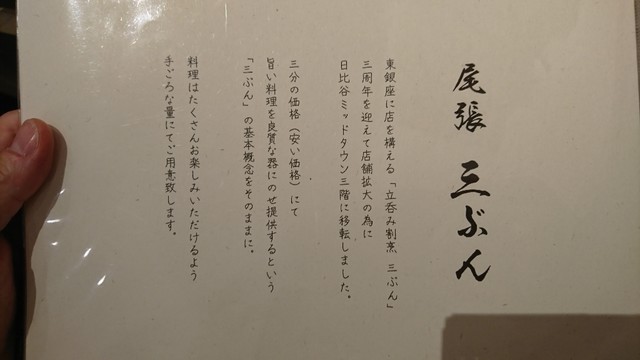 尾張 三ぶん
東銀座に店を構える「立呑み割烹 三ぶん」
三周年を迎えて店舗拡大の為に
日比谷ミッドタウン三階に移転しました。
三分の価格（安い価格）にて
旨い料理を良質な器にのせ提供するという
「三ぶん」の基本概念をそのままに。
料理はたくさんお楽しみいただけるよう
手ごろな量にてご用意致します。